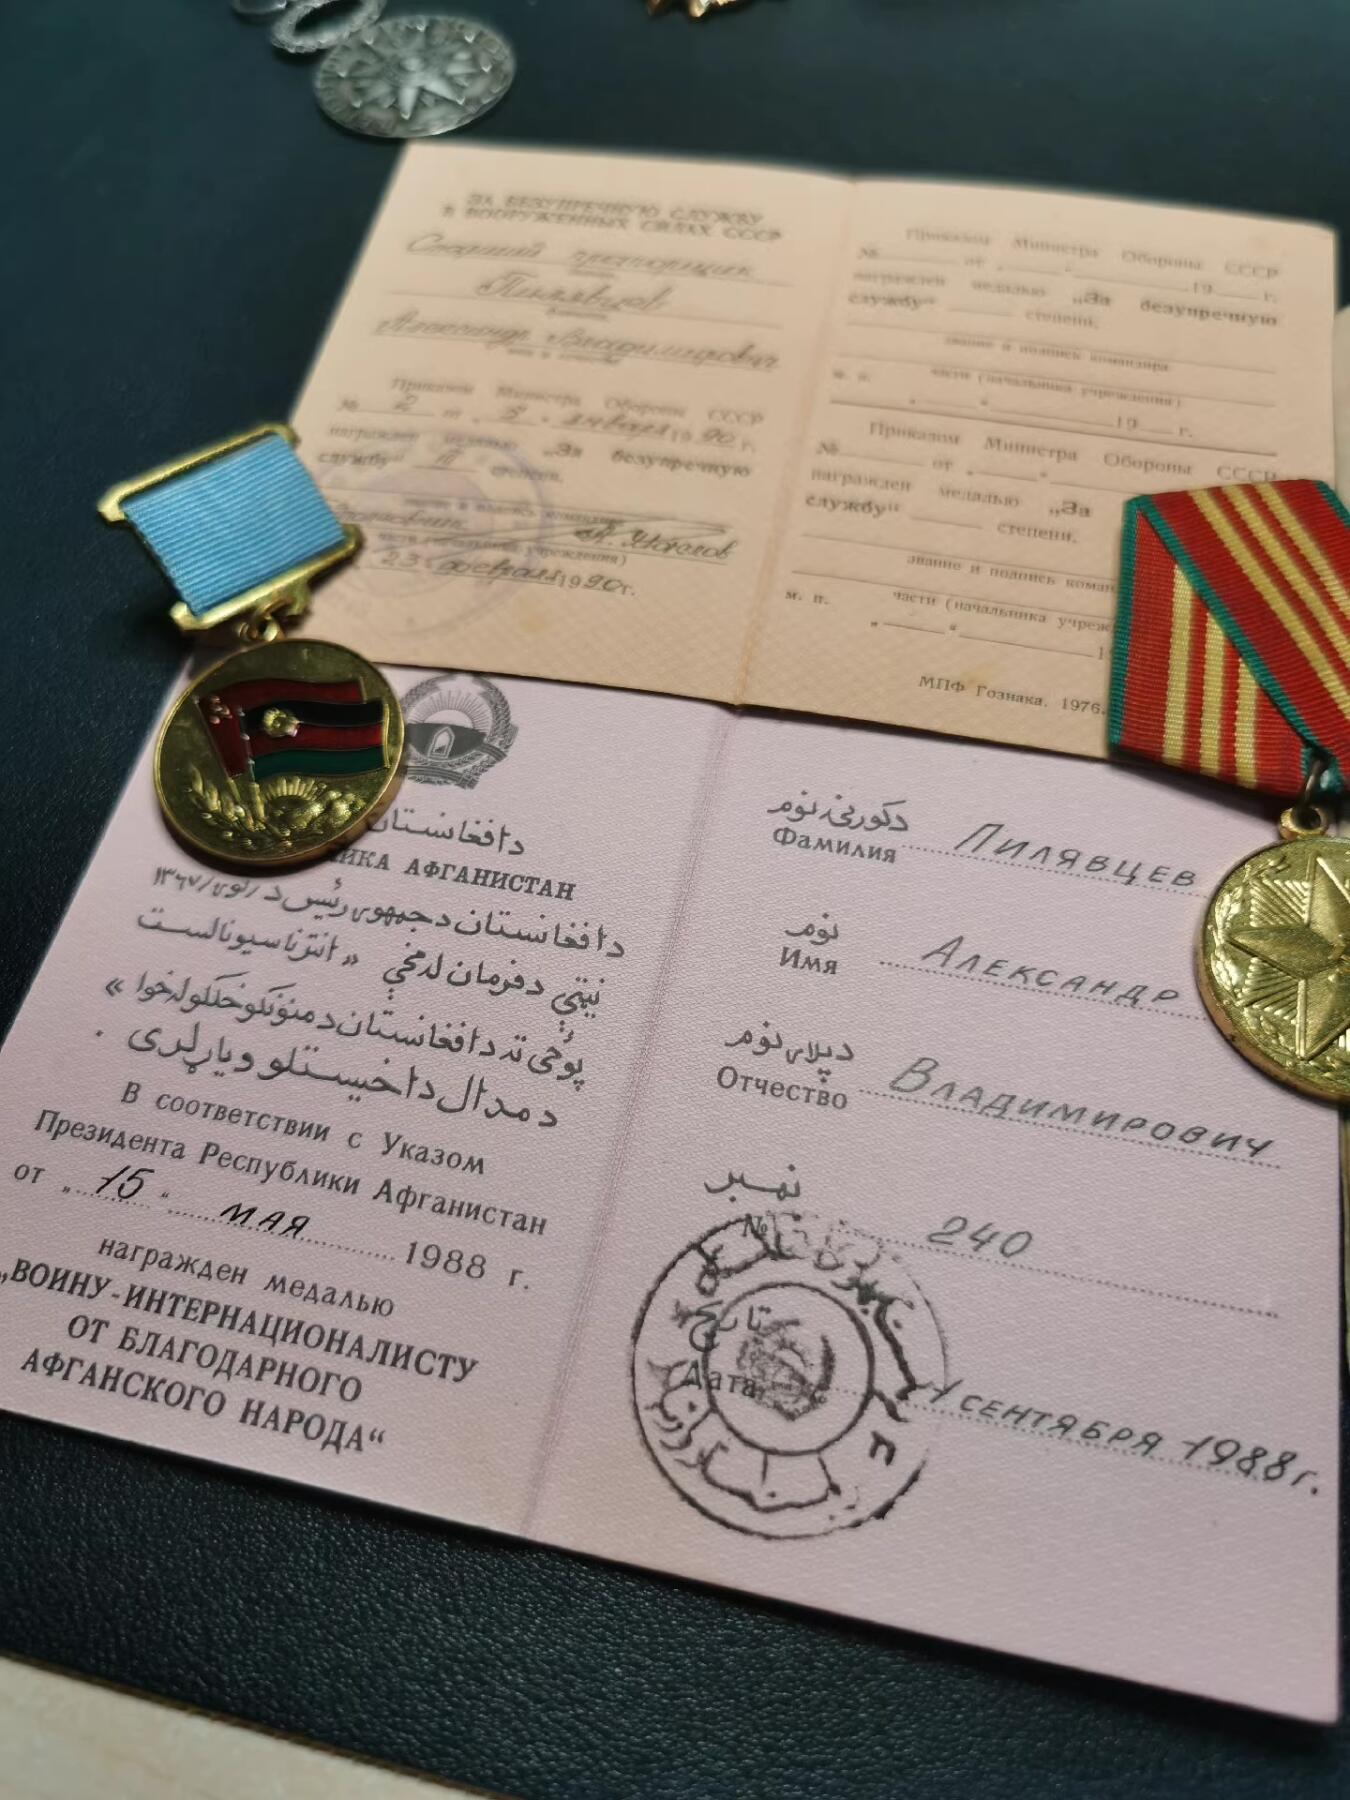 ЗА БЕЗУПРЕЧНУЮ СЛУЖБУ
В ВООРУЖЕННЫХ СИЛАХ СССР
Старший прапорщик
Пилявцев
Александр Владимирович
имя и отчество
Приказом Министра Обороны СССР
№ 2 от „5“ января 1990 г.
награжден медалью „За безупречную
службу“ III степени.
части (начальника учреждения)
23 февраля 1990 г.
Приказом Министра Обороны СССР
№ от „ “ 19 г.
награжден медалью „За безупречную
службу“ степени.
звание и подпись командира
м. п. части (начальника учреждения)
„ “ 19 г.
Приказом Министра Обороны СССР
№ от „ “
награжден медалью „За
службу“ степени.
звание и подпись коман
м. п. части (начальника учреж
„ “ 1
МПФ Гознака. 1976.
دافغانستان
ИКА АФГАНИСТАН
دافغانستان دجمهوری رئیس د
نیټې دفرمان له مخې »انترناسیونالست
پوځی ته دافغانستان دمننوکوخلکو له خوا«
د مدال داخیستلو ویاړلری .
В соответствии с Указом
Президента Республики Афганистан
от „15“ мая 1988 г.
награжден медалью
„ВОИНУ-ИНТЕРНАЦИОНАЛИСТУ
ОТ БЛАГОДАРНОГО
АФГАНСКОГО НАРОДА“
دکورنۍ نوم
Фамилия Пилявцев
نوم
Имя Александр
دپلار نوم
Отчество Владимирович
نمبر
№ 240
تاریخ
Дата 1 сентября 1988 г.